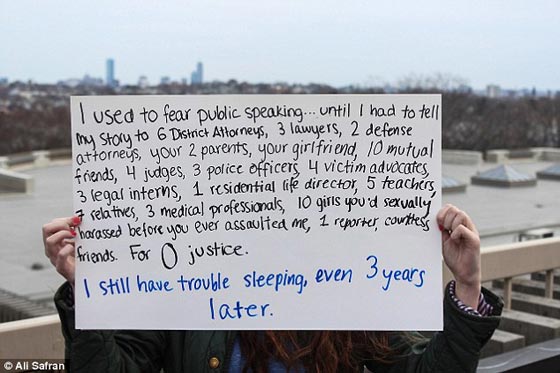 I used to fear public speaking... until I had to tell
my story to 6 District Attorneys, 3 lawyers, 2 defense
attorneys, your 2 parents, your girlfriend, 10 mutual
friends, 4 judges, 3 police officers, 4 victim advocates,
3 legal interns, 1 residential life director, 5 teachers,
7 relatives, 3 medical professionals, 10 girls you'd sexually
harassed before you ever assaulted me, 1 reporter, countless
friends. For 0 justice.
I still have trouble sleeping, even 3 years
later.
© Ali Safran